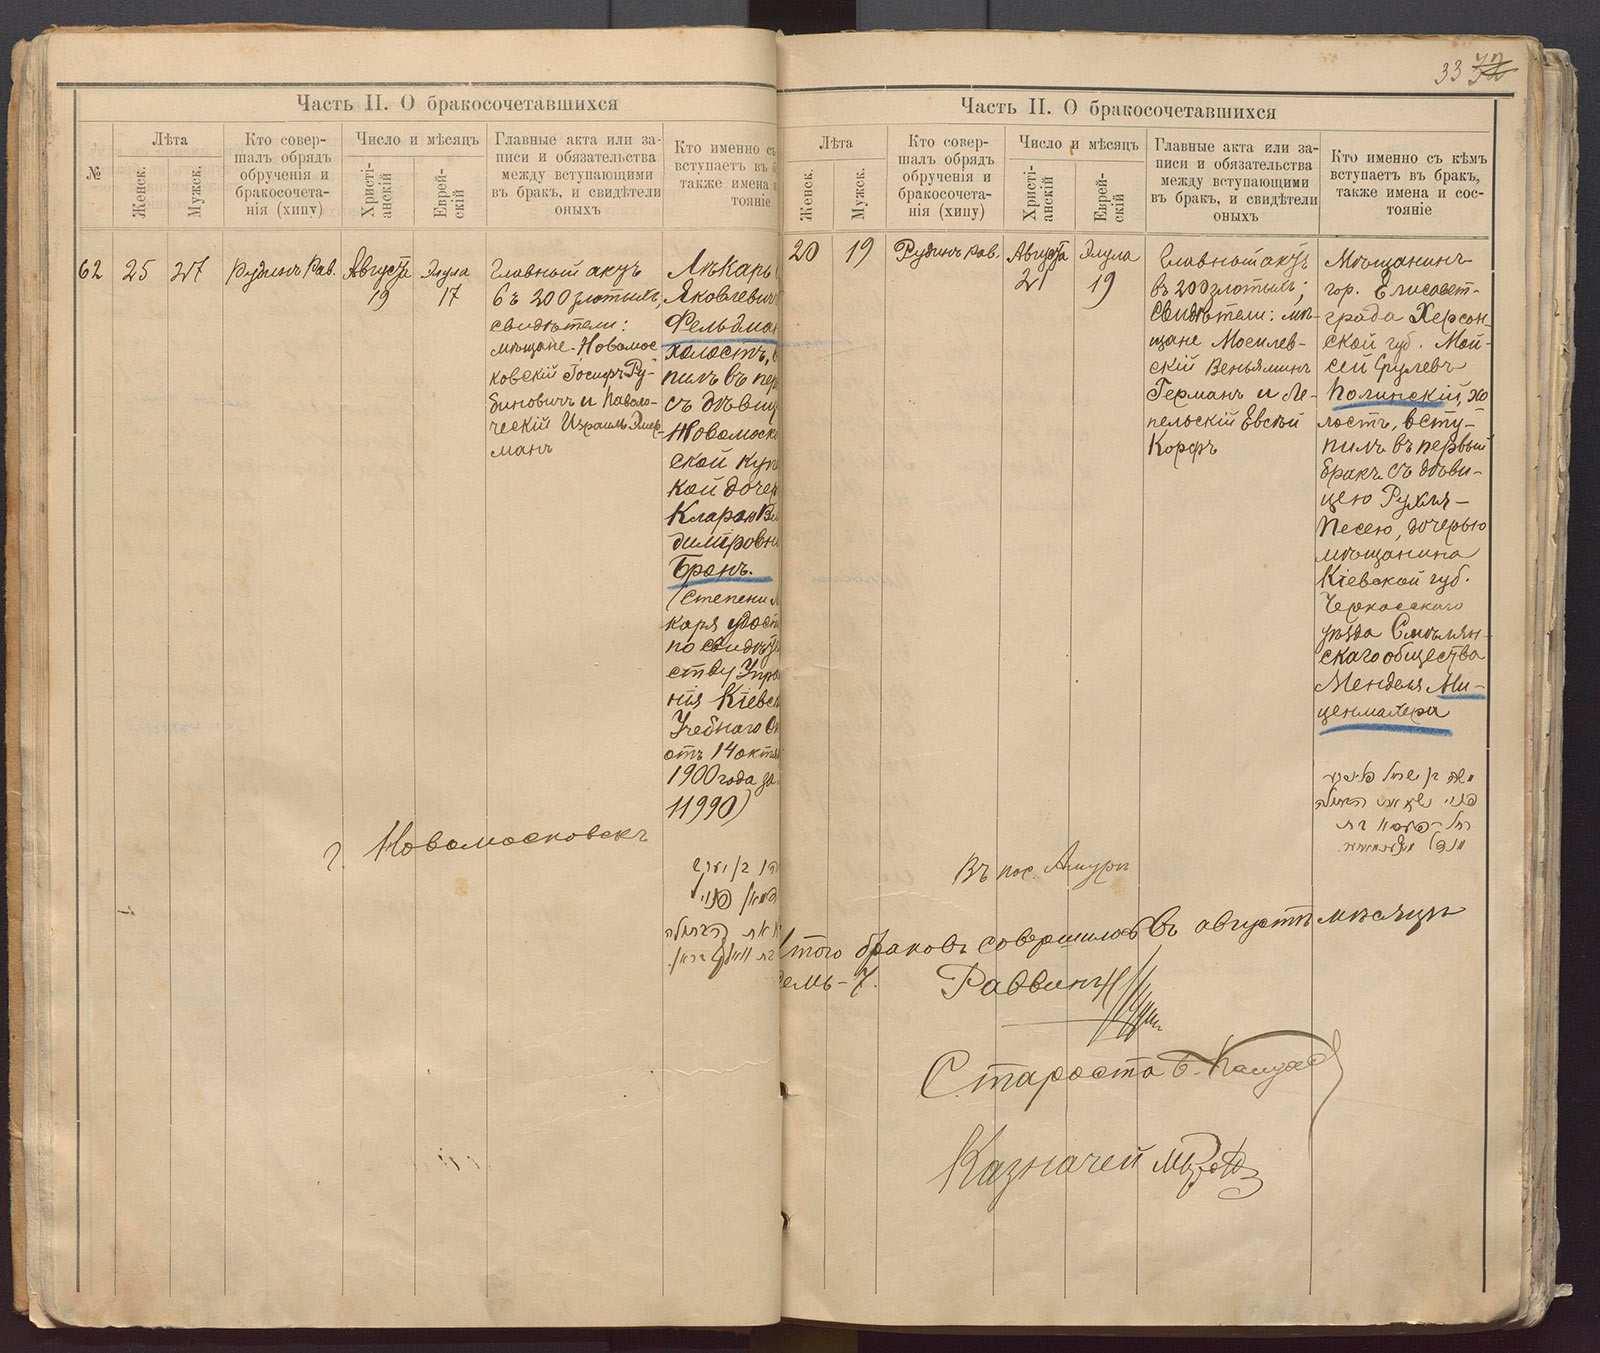 33 32
Часть II. О бракосочетавшихся
№
Лѣта
Женск.
Мужск.
Кто совер-
шалъ обрядъ
обрученія и
бракосочета-
нія (хипу)
Число и мѣсяцъ
Христі-
анскій
Еврей-
скій
Главные акта или за-
писи и обязательства
между вступающими
въ бракъ, и свидѣтели
оныхъ
Кто именно съ
вступаетъ въ б
также имена и
тояніе
62
25
27
Рудинъ Рав.
Августа
19
Элула
17
Главный актъ
въ 200 злотыхъ,
свидѣтели:
мѣщане-Новомос-
ковскій Іосифъ Ру-
биновичъ и Паволо-
ческій Израиль Эпер-
манъ
Лѣкарь
Яковлевичъ
Фельдма
холостъ, в
пилъ въ пер
съ дѣвиц
Новомоск
ской куп
кой дочер
Кларою Вл
димировн
Бранъ.
(степени л
каря удост
по свидѣт
ству Упра
нія Кіевск
Учебнаго Ок
отъ 14 октя
1900 года за
11990)
г. Новомосковскъ
Часть II. О бракосочетавшихся
Лѣта
Женск.
Мужск.
Кто совер-
шалъ обрядъ
обрученія и
бракосочета-
нія (хипу)
Число и мѣсяцъ
Христі-
анскій
Еврей-
скій
Главные акта или за-
писи и обязательства
между вступающими
въ бракъ, и свидѣтели
оныхъ
Кто именно съ кѣмъ
вступаетъ въ бракъ,
также имена и сос-
тояніе
20
19
Рудинъ Рав.
Августа
21
Элула
19
Главный актъ
въ 200 злотыхъ;
свидѣтели: мѣ-
щане Могилев-
скій Веньяминъ
Германъ и Ле-
пельскій Евсѣй
Корфъ
Мѣщанинъ
гор. Елисавет-
града Херсон-
ской губ. Мой-
сей Срулевъ
Полинскій, хо
лостъ, всту-
пилъ въ первый
бракъ съ дѣви-
цею Рухля-
Песею, дочерью
мѣщанина
Кіевской губ.
Черкасскаго
уѣзда Смѣлян-
скаго общества
Менделя Ми-
ценмахера
Въ пос. Амуръ
Итого браковъ совершилось въ августѣ мѣсяцѣ
семь-7.
Раввинъ
Староста
Казначей